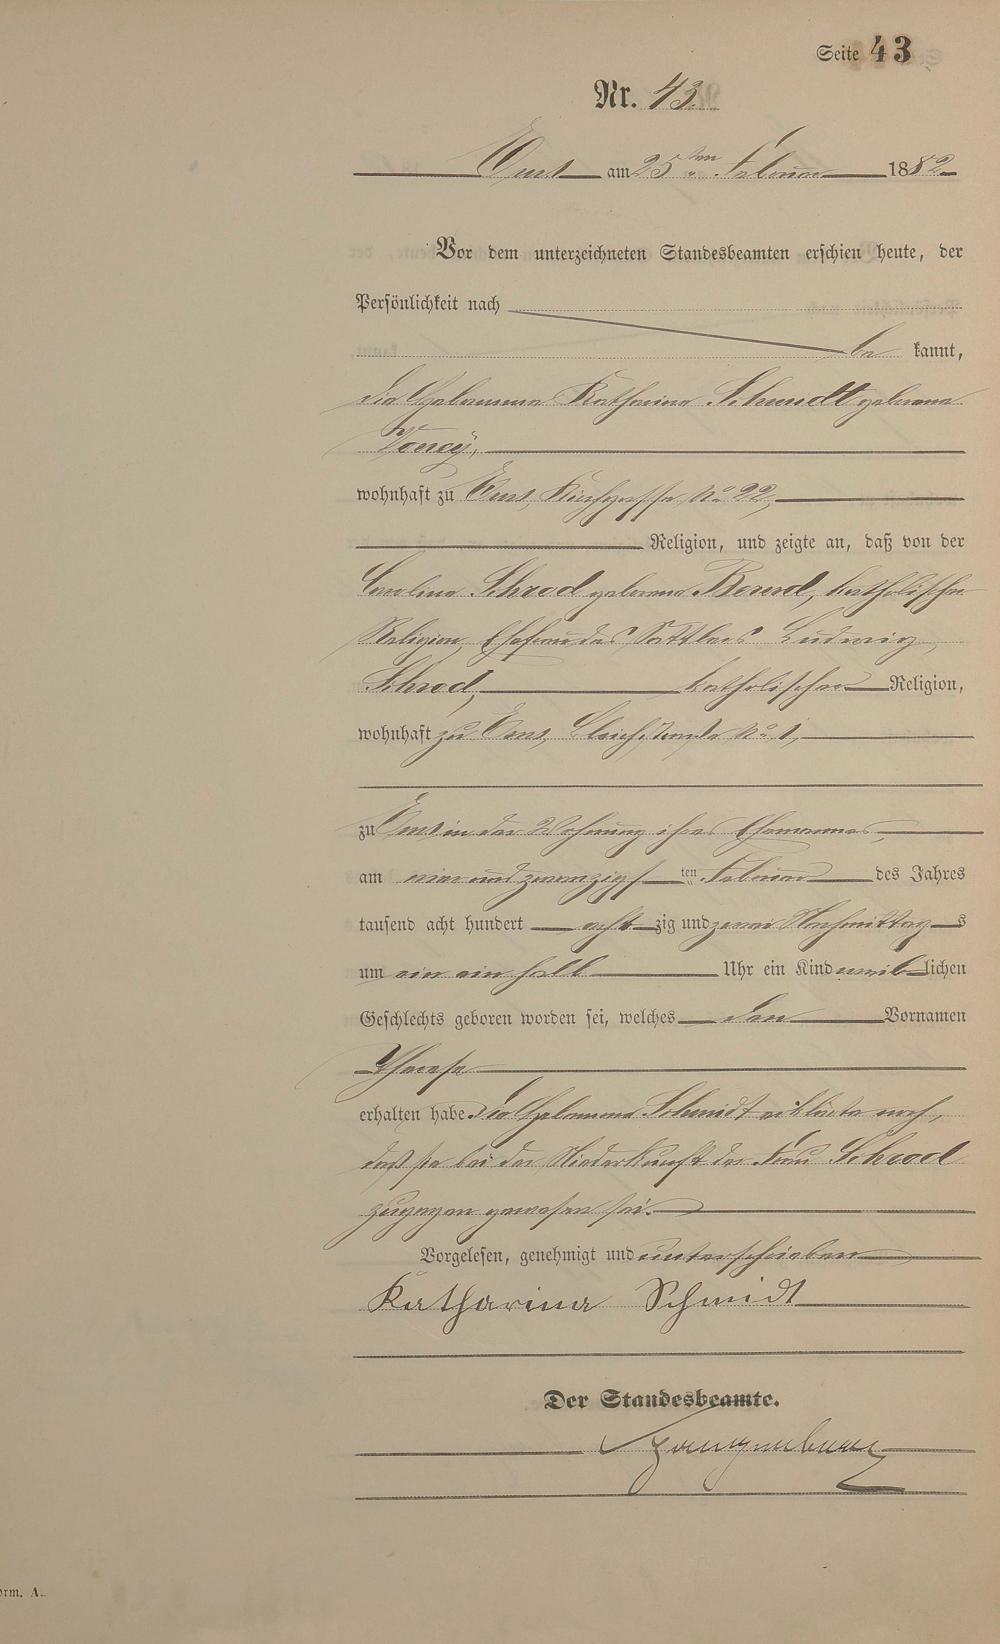 Seite 43
Nr. 43.
Ems am 25ten Februar 1882
Vor dem unterzeichneten Standesbeamten erschien heute, der
Persönlichkeit nach
be kannt,
die Hebamme Katharina Schmidt geborene
wohnhaft zu Ems, Kirchgasse No 22,
Religion, und zeigte an, daß von der
Carolina Schrod geborene Bernd, katholischer
Religion, Ehefrau des Sattlers Ludwig
Schrod, katholischer Religion,
wohnhaft zu Ems, No 1,
zu Ems in der Wohnung ihres Ehemannes,
am vier und zwanzigs ten Februar des Jahres
tausend acht hundert acht zig und zwei Nachmittag s
um ein ein halb Uhr ein Kind weib lichen
Geschlechts geboren worden sei, welches den Vornamen
Therese
erhalten habe. Die Hebamme Schmidt erklärte noch,
daß sie bei der Niederkunft der Frau Schrod
zugegen gewesen sei.
Vorgelesen, genehmigt und unterschrieben
Katharina Schmidt
Der Standesbeamte.
orm. A.